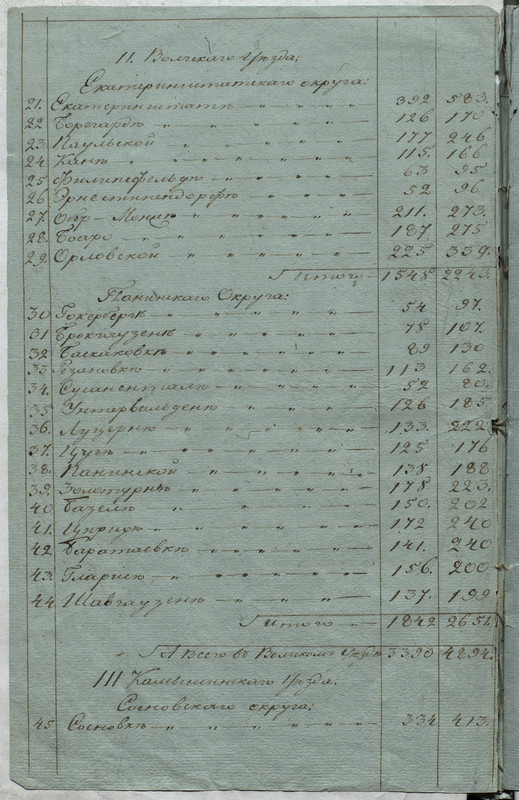 II. Волгскаго Уезда:
Екатеринштатскаго округа:
21. Екатеринштатъ 392 583.
22 Борегардъ 126 170
23 Паульской 177 246
24 Канъ 115. 166
25 Филипсфельдъ 63 95
26 Эрнестинендорфъ 52 96
27. Обер-Монжу 211. 273.
28. Боаро 187 275
29. Орловской 225 339.
Итого 1548 2243
Панинскаго Округа:
30 Гокербергъ 54 97.
31 Брокгаузенъ 78 107.
32 Баскаковкъ 89 130
33 Резановкъ 113 162.
34. Сусаненталь 52 80.
35 Унтервальденъ 126 185
36. Луцернъ 133. 222
37. Цугъ 125 176
38. Панинской 138 188
39. Золотурнъ 178 223.
40 Базель 150. 202
41. Цирихъ 172 240
42 Баратаевкъ 141. 240
43. Гларисъ 156. 200
44. Шавгаузенъ 137. 199
Итого 1842 2651.
А всего въ Волгскомъ Уездъ 3390 4894.
III Камышинскаго Уезда:
Сосновскаго округа:
45 Сосновкъ 334 413.